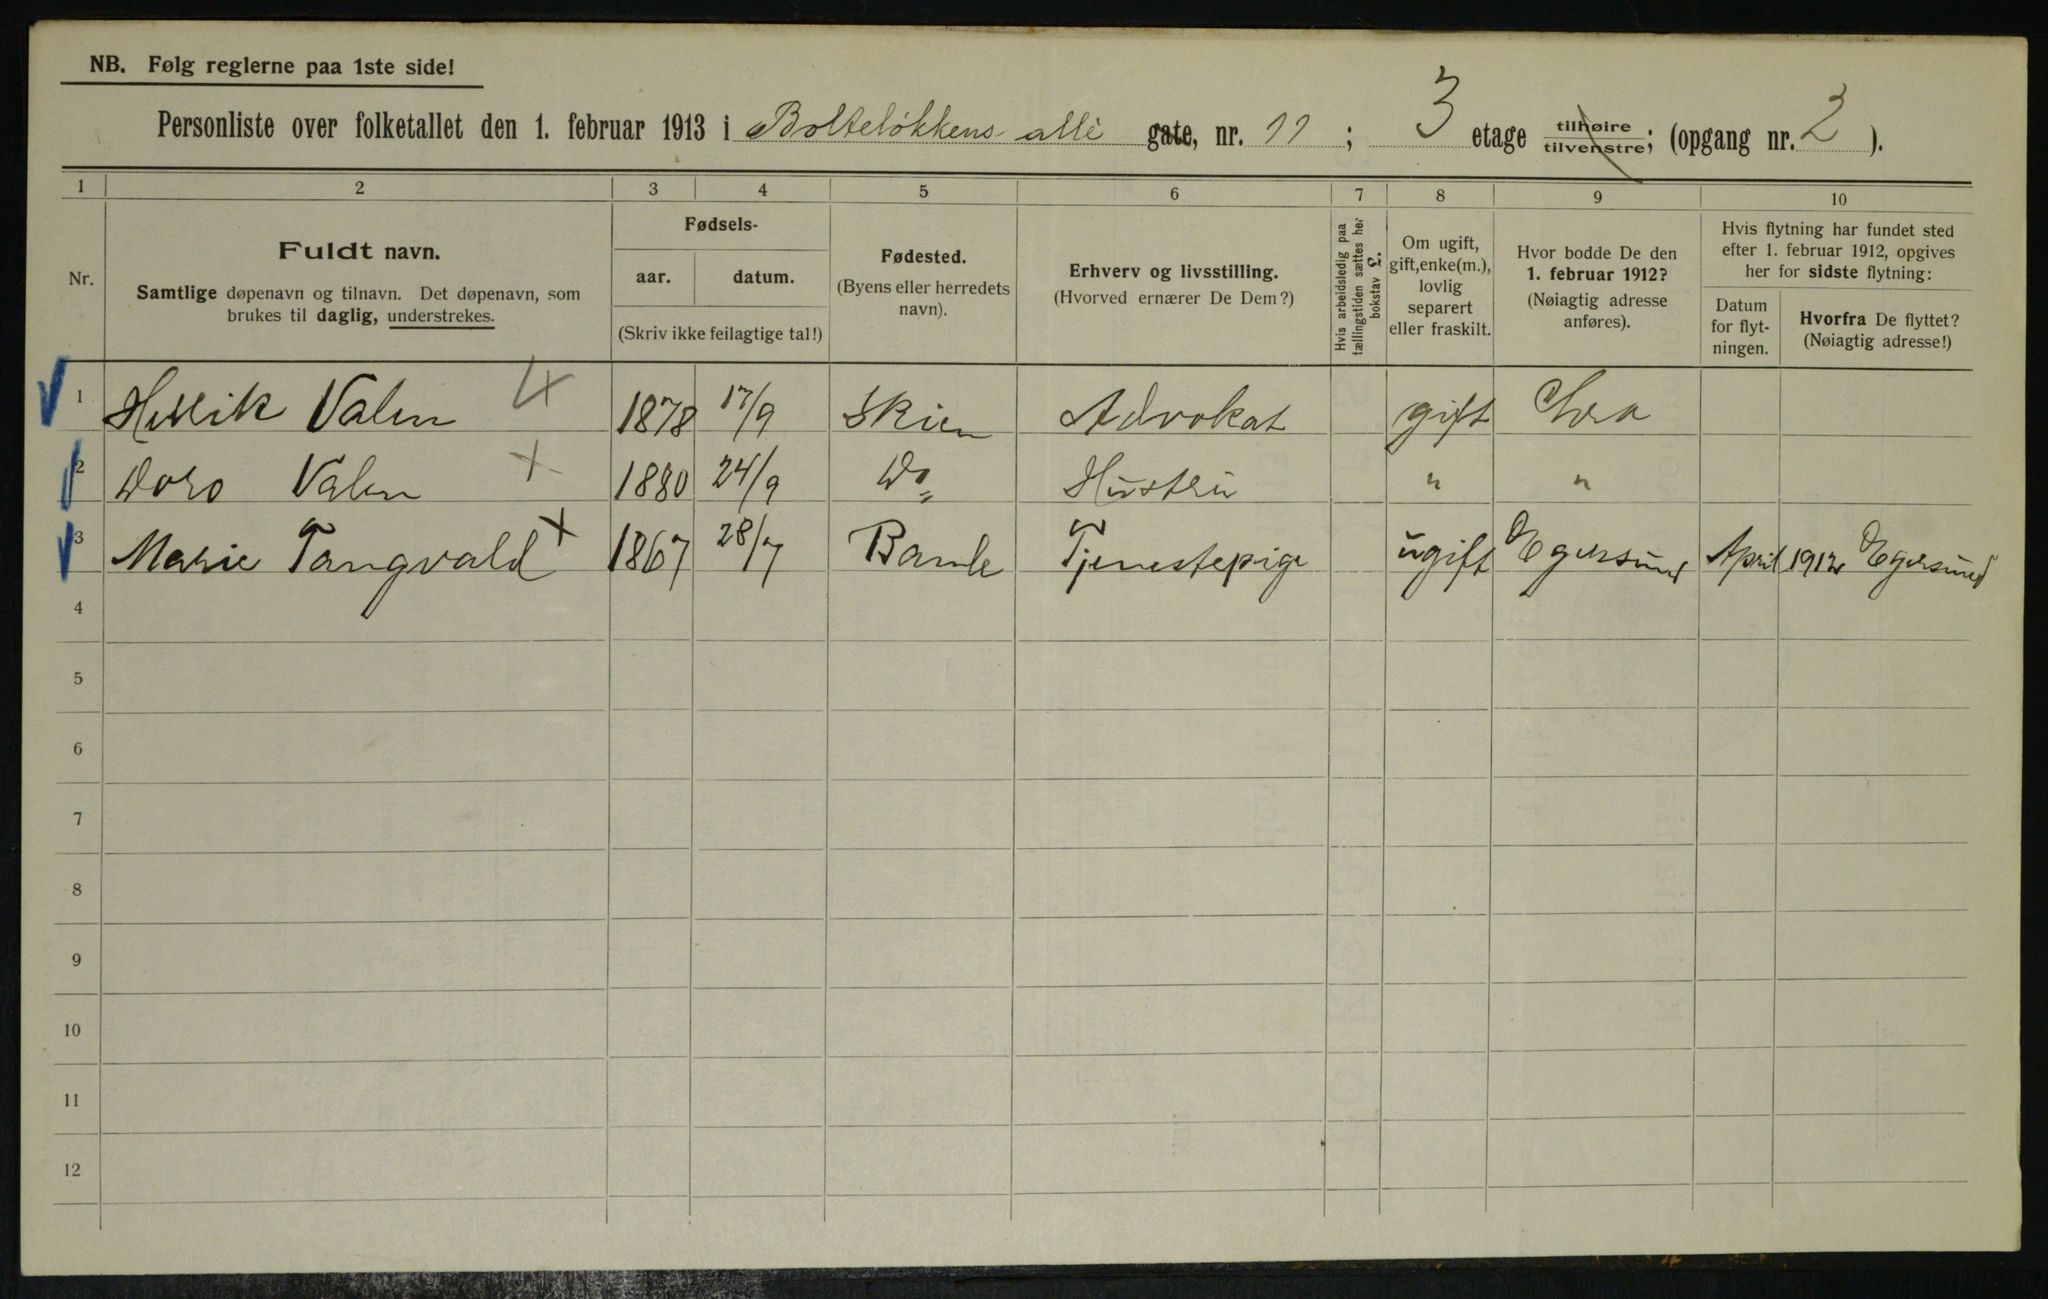 NB. Følg reglerne paa 1ste side!
Personliste over folketallet den 1. februar 1913 i Bolteløkkens allè gate, nr. 11; 3 etage tilhøire tilvenstre; (opgang nr. 2).
1 2 3 4 5 6 7 8 9 10
Nr.
Fuldt navn.
Samtlige døpenavn og tilnavn. Det døpenavn, som
brukes til daglig, understrekes.
Fødsels-
aar. datum.
(Skriv ikke feilagtige tal!)
Fødested.
(Byens eller herredets
navn).
Erhverv og livsstilling.
(Hvorved ernærer De Dem?)
Hvis arbeidsledig paa
tællingstiden sættes her
bokstav L.
Om ugift,
gift, enke(m.),
lovlig
separert
eller fraskilt.
Hvor bodde De den
1. februar 1912?
(Nøiagtig adresse
anføres).
Hvis flytning har fundet sted
efter 1. februar 1912, opgives
her for sidste flytning:
Datum
for flyt-
ningen.
Hvorfra De flyttet?
(Nøiagtig adresse!)
1 Henrik Valen 1878 17/9 Skien Advokat gift
2 Doro Valen 1880 24/9 Do Hustru " "
3 Marie Tangvald 1867 28/7 Bamle Tjenestepige ugift Egersund April 1912 Egersund
4
5
6
7
8
9
10
11
12